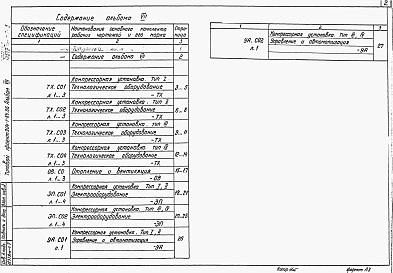 2
Содержание альбома VII
Обозначение спецификаций
Наименование основного комплекта рабочих чертежей и его марка
Страница
1
2
3
Содержание альбома VII
2
ТХ. СО1
л. 1...3
Компрессорная установка. Тип I
Технологическое оборудование
-ТХ
3...5
ТХ. СО2
л. 1...3
Компрессорная установка. Тип
Технологическое оборудование
-ТХ
6...8
ТХ. СО3
л. 1...3
Компрессорная установка. Тип
Технологическое оборудование
-ТХ
9...11
ТХ. СО4
л. 1...3
Компрессорная установка. Тип
Технологическое оборудование
-ТХ
12...14
ОВ. СО
л. 1...3
Отопление и вентиляция
-ОВ
15...17
ЭП. СО1
л. 1...4
Компрессорная установка. Тип
Электрооборудование
-ЭП
ЭП. СО2
л. 1...4
Компрессорная установка. Тип
Электрооборудование
-ЭП
ЭА. СО1
л. 1
Компрессорная установка. Тип
Управление и автоматизация
-ЭА
26
1
2
3
ЭА. СО2
л. 1
Компрессорная установка. Тип
Управление и автоматизация
-ЭА
27
формат А3